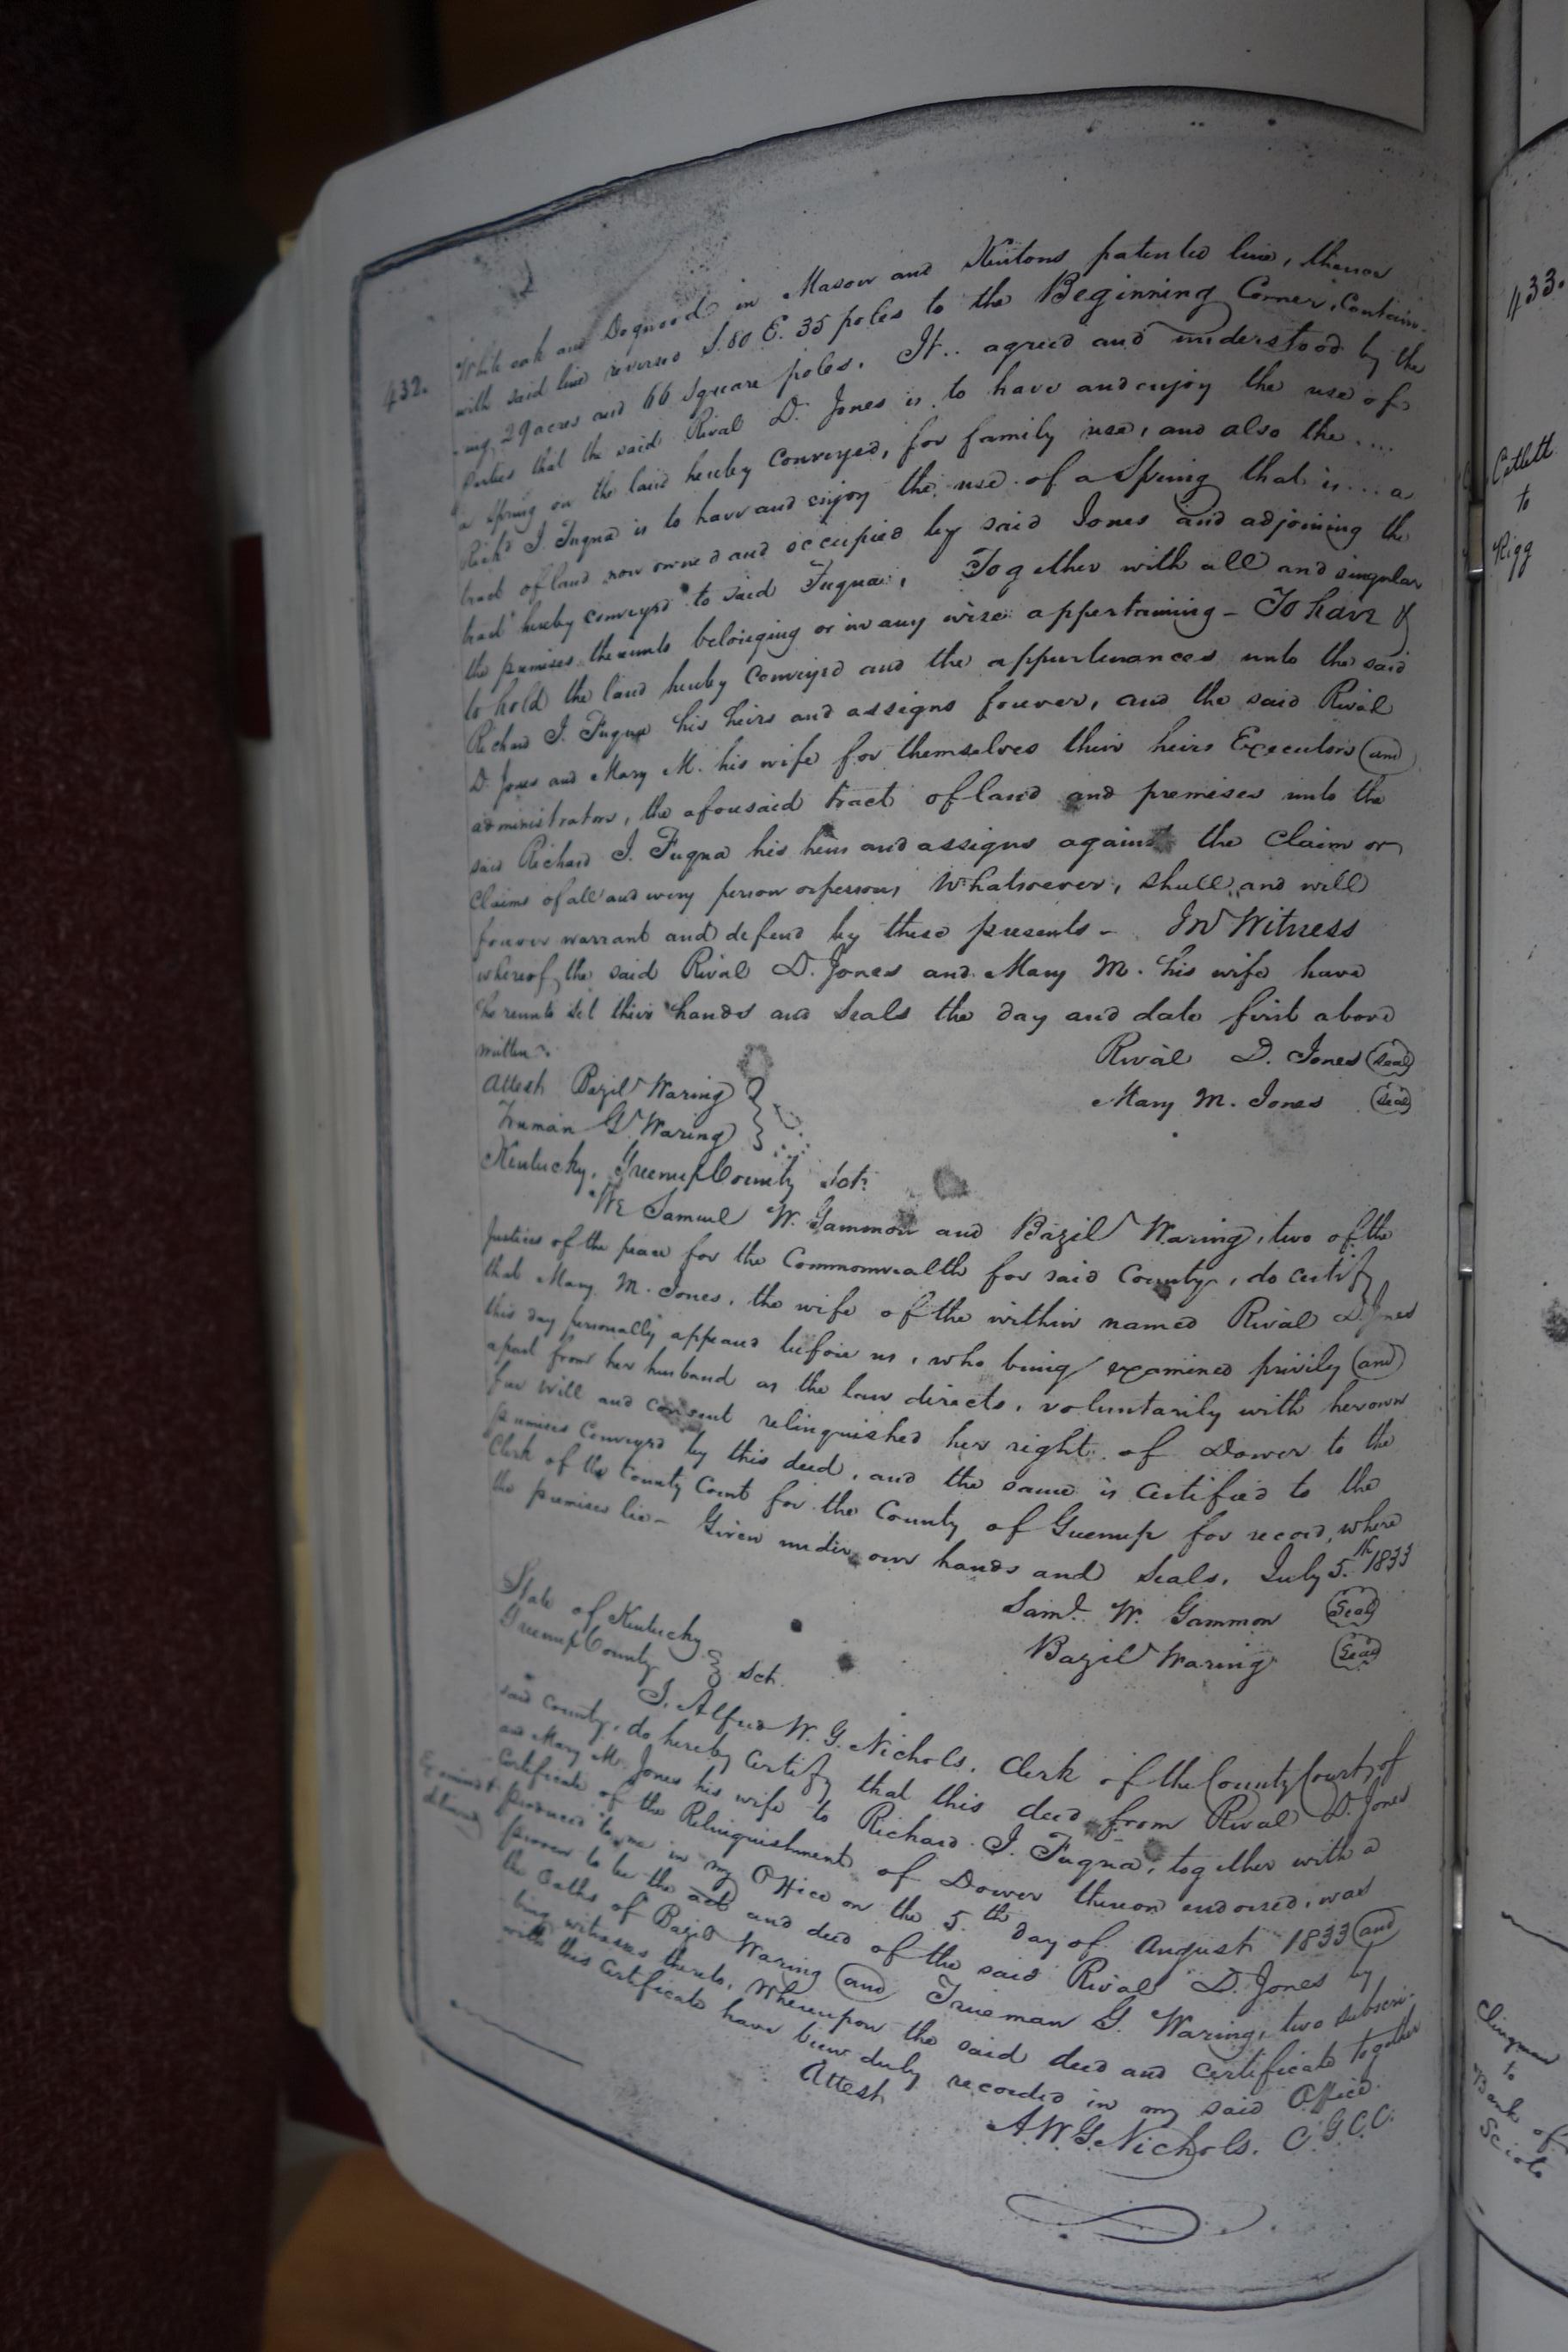 432.
White oak and Dogwood in Mason and Kentons patented line, thence
with said line reversed S. 80 E. 35 poles to the Beginning Corner, Contain-
-ing, 29 acres and 66 square poles. It .. agreed and understood by the
Parties that the said Rival D. Jones is to have and enjoy the use of
a Spring on the land hereby Conveyed, for family use, and also the ....
Richd J. Fuqua is to have and enjoy the use of a Spring that is ... a
tract of land now owned and occupied by said Jones and adjoining the
tract hereby conveyed to said Fuqua, Together with all and singular
the premises thereunto belonging or in any wise appertaining - To have &
to hold the land hereby Conveyed and the appurtenances unto the said
Richard J. Fuqua his heirs and assigns forever, and the said Rival
D. Jones and Mary M. his wife for themselves their heirs Executors and
administrators, the aforesaid tract of land and premises unto the
said Richard J. Fuqua his heirs and assigns against the Claim or
Claims of all and every person or persons Whatsoever, shall and will
forever warrant and defend by these presents - In Witness
whereof the said Rival D. Jones and Mary M. his wife have
hereunto set their hands and Seals the day and date first above
written.
Rival D. Jones Seal
Attest Bazil Waring
Mary M. Jones Seal
Truman G. Waring
Kentucky, Greenup County Sct.
We Samuel W. Gammon and Bazil Waring, two of the
Justices of the peace for the Commonwealth for said County, do certify
that Mary M. Jones, the wife of the within named Rival D. Jones
this day personally appeared before us, who being examined privily and
apart from her husband as the law directs, voluntarily with her own
free will and consent relinquished her right of Dower to the
premises Conveyed by this deed, and the same is Certified to the
Clerk of the County Court for the County of Greenup for record, where
the premises lie - Given under our hands and Seals, July 5.th 1833
Saml. W. Gammon Seal
Bazil Waring Seal
State of Kentucky
Greenup County Sct.
I. Alfred W. G. Nichols, Clerk of the County Court, of
said County, do hereby Certify that this deed from Rival D. Jones
and Mary M. Jones his wife to Richard J. Fuqua, together with a
Certificate of the Relinquishment of Dower thereon endorsed, was
produced to me in my Office on the 5.th day of August 1833 and
proven to be the act and deed of the said Rival D. Jones by
the Oaths of Bazil Waring and Trueman G. Waring, two subscri-
-bing witnesses thereto, Whereupon the said deed and Certificate together
with this Certificate have been duly recorded in my said Office.
Attest
A. W. G. Nichols. C. G. C. C.
433.
Catlett
to
Rigg
Clingman
to
Bank of
Scioto